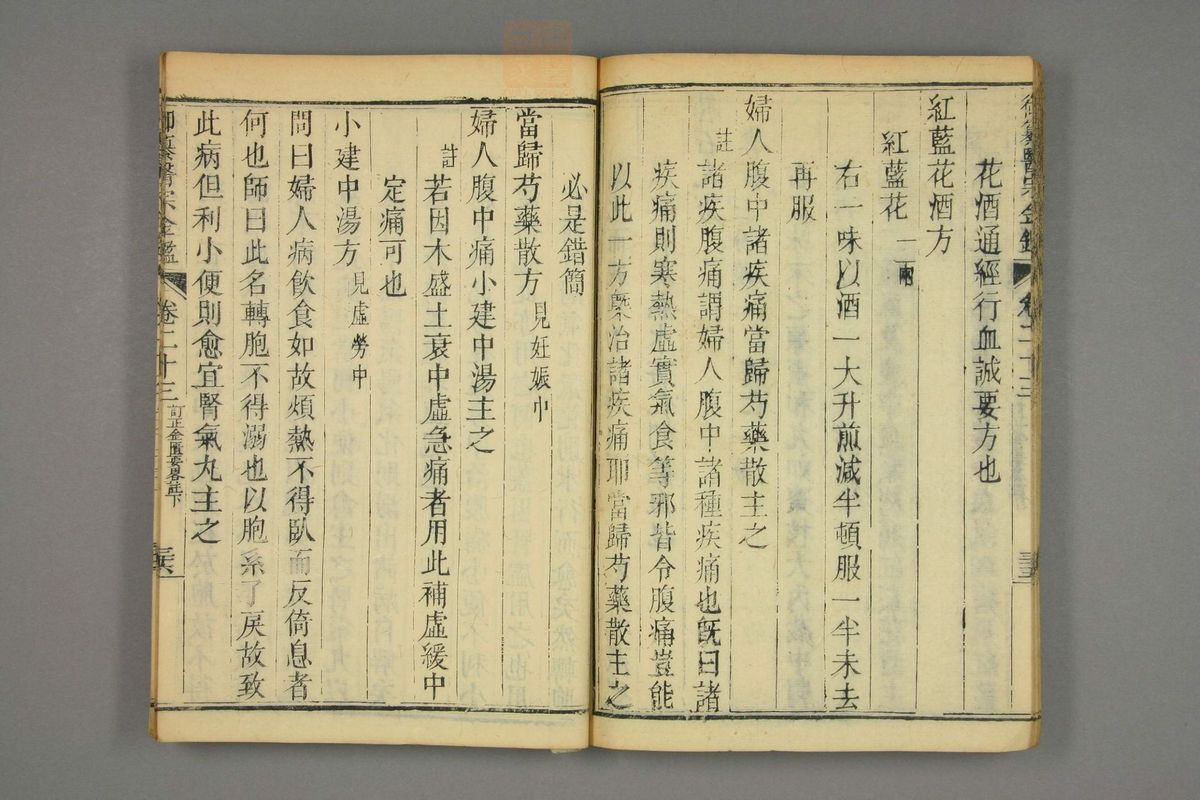 御纂醫宗金鑑 卷二十三
花酒通經行血誠要方也
紅藍花酒方
紅藍花一兩
右一味以酒一大升煎減半頓服一半未去
再服
婦人腹中諸疾痛當歸芍藥散主之
註諸疾腹痛謂婦人腹中諸種疾痛也旣曰諸
疾痛則寒熱虛實氣食等邪皆令腹痛豈能
以此一方槩治諸疾痛耶當歸芍藥散主之
必是錯簡
當歸芍藥散方見妊娠中
婦人腹中痛小建中湯主之
註若因木盛土衰中虛急痛者用此補虛緩中
定痛可也
小建中湯方見虛勞中
問曰婦人病飮食如故煩熱不得臥而反倚息者
何也師曰此名轉胞不得溺也以胞系了戾故致
此病但利小便則愈宜腎氣丸主之
御纂醫宗金鑑 卷二十三 訂正金匱要畧註下